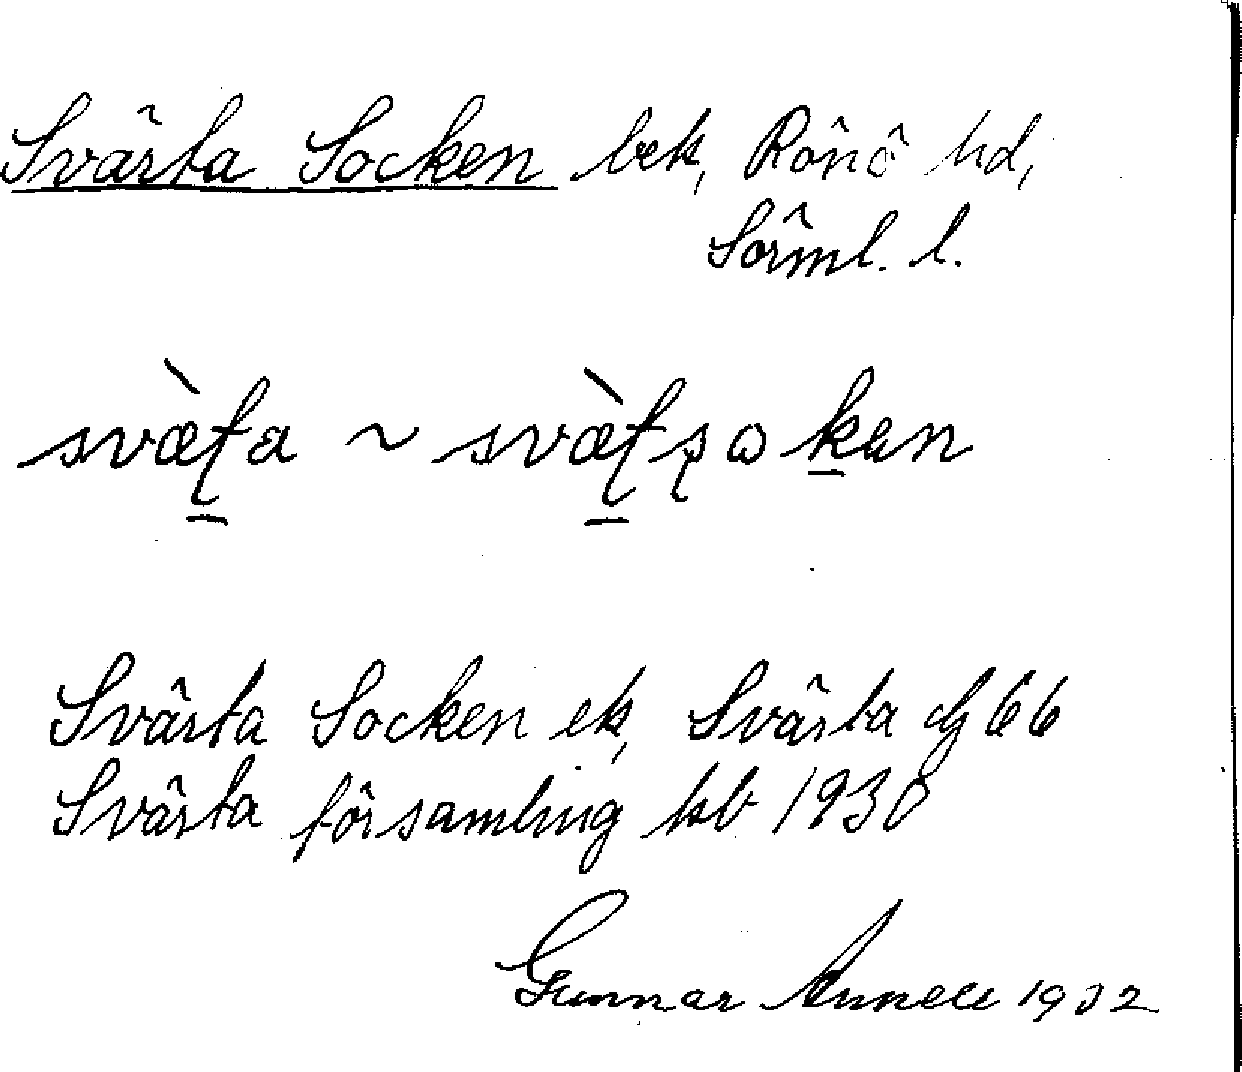 Svärta Socken bek, Rönö hd,
Sörml. l.
svæ̀ʈa ~ svæ̀ʈʂωken
Svärta Socken ek, Svärta dg 66
Svärta församling kb 1930
Gunnar Annell 1932